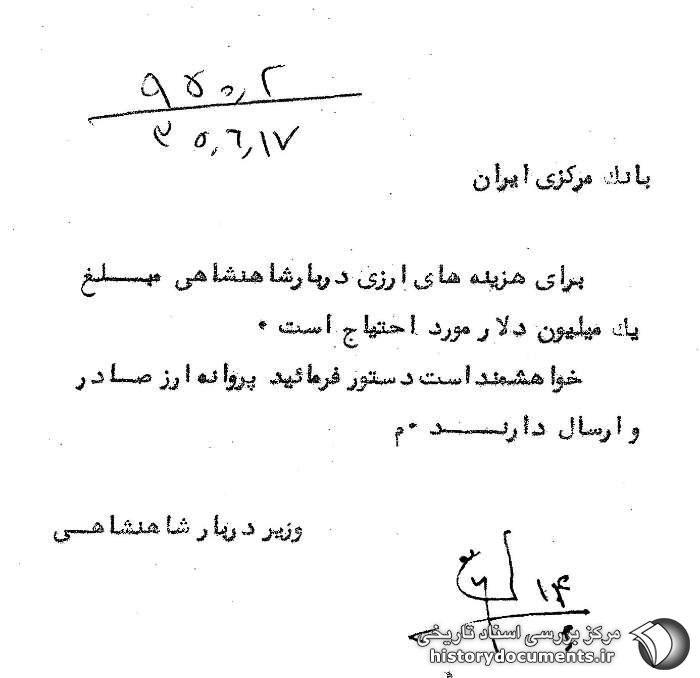 ۹۵۰٫۲
۳۵٫۶٫۱۷
بانك مرکزی ایران
برای هزینه های ارزی دربارشاهنشاهی مبـــلغ
یك میلیون دلار مورد احتیاج است ۰
خواهشمند است دستور فرمائید پروانه ارز صـادر
و ارسال دارنـــــد ۰م
وزیر دربار شاهنشاهـی
۱۴
مرکز بررسی اسناد تاریخی
historydocuments.ir